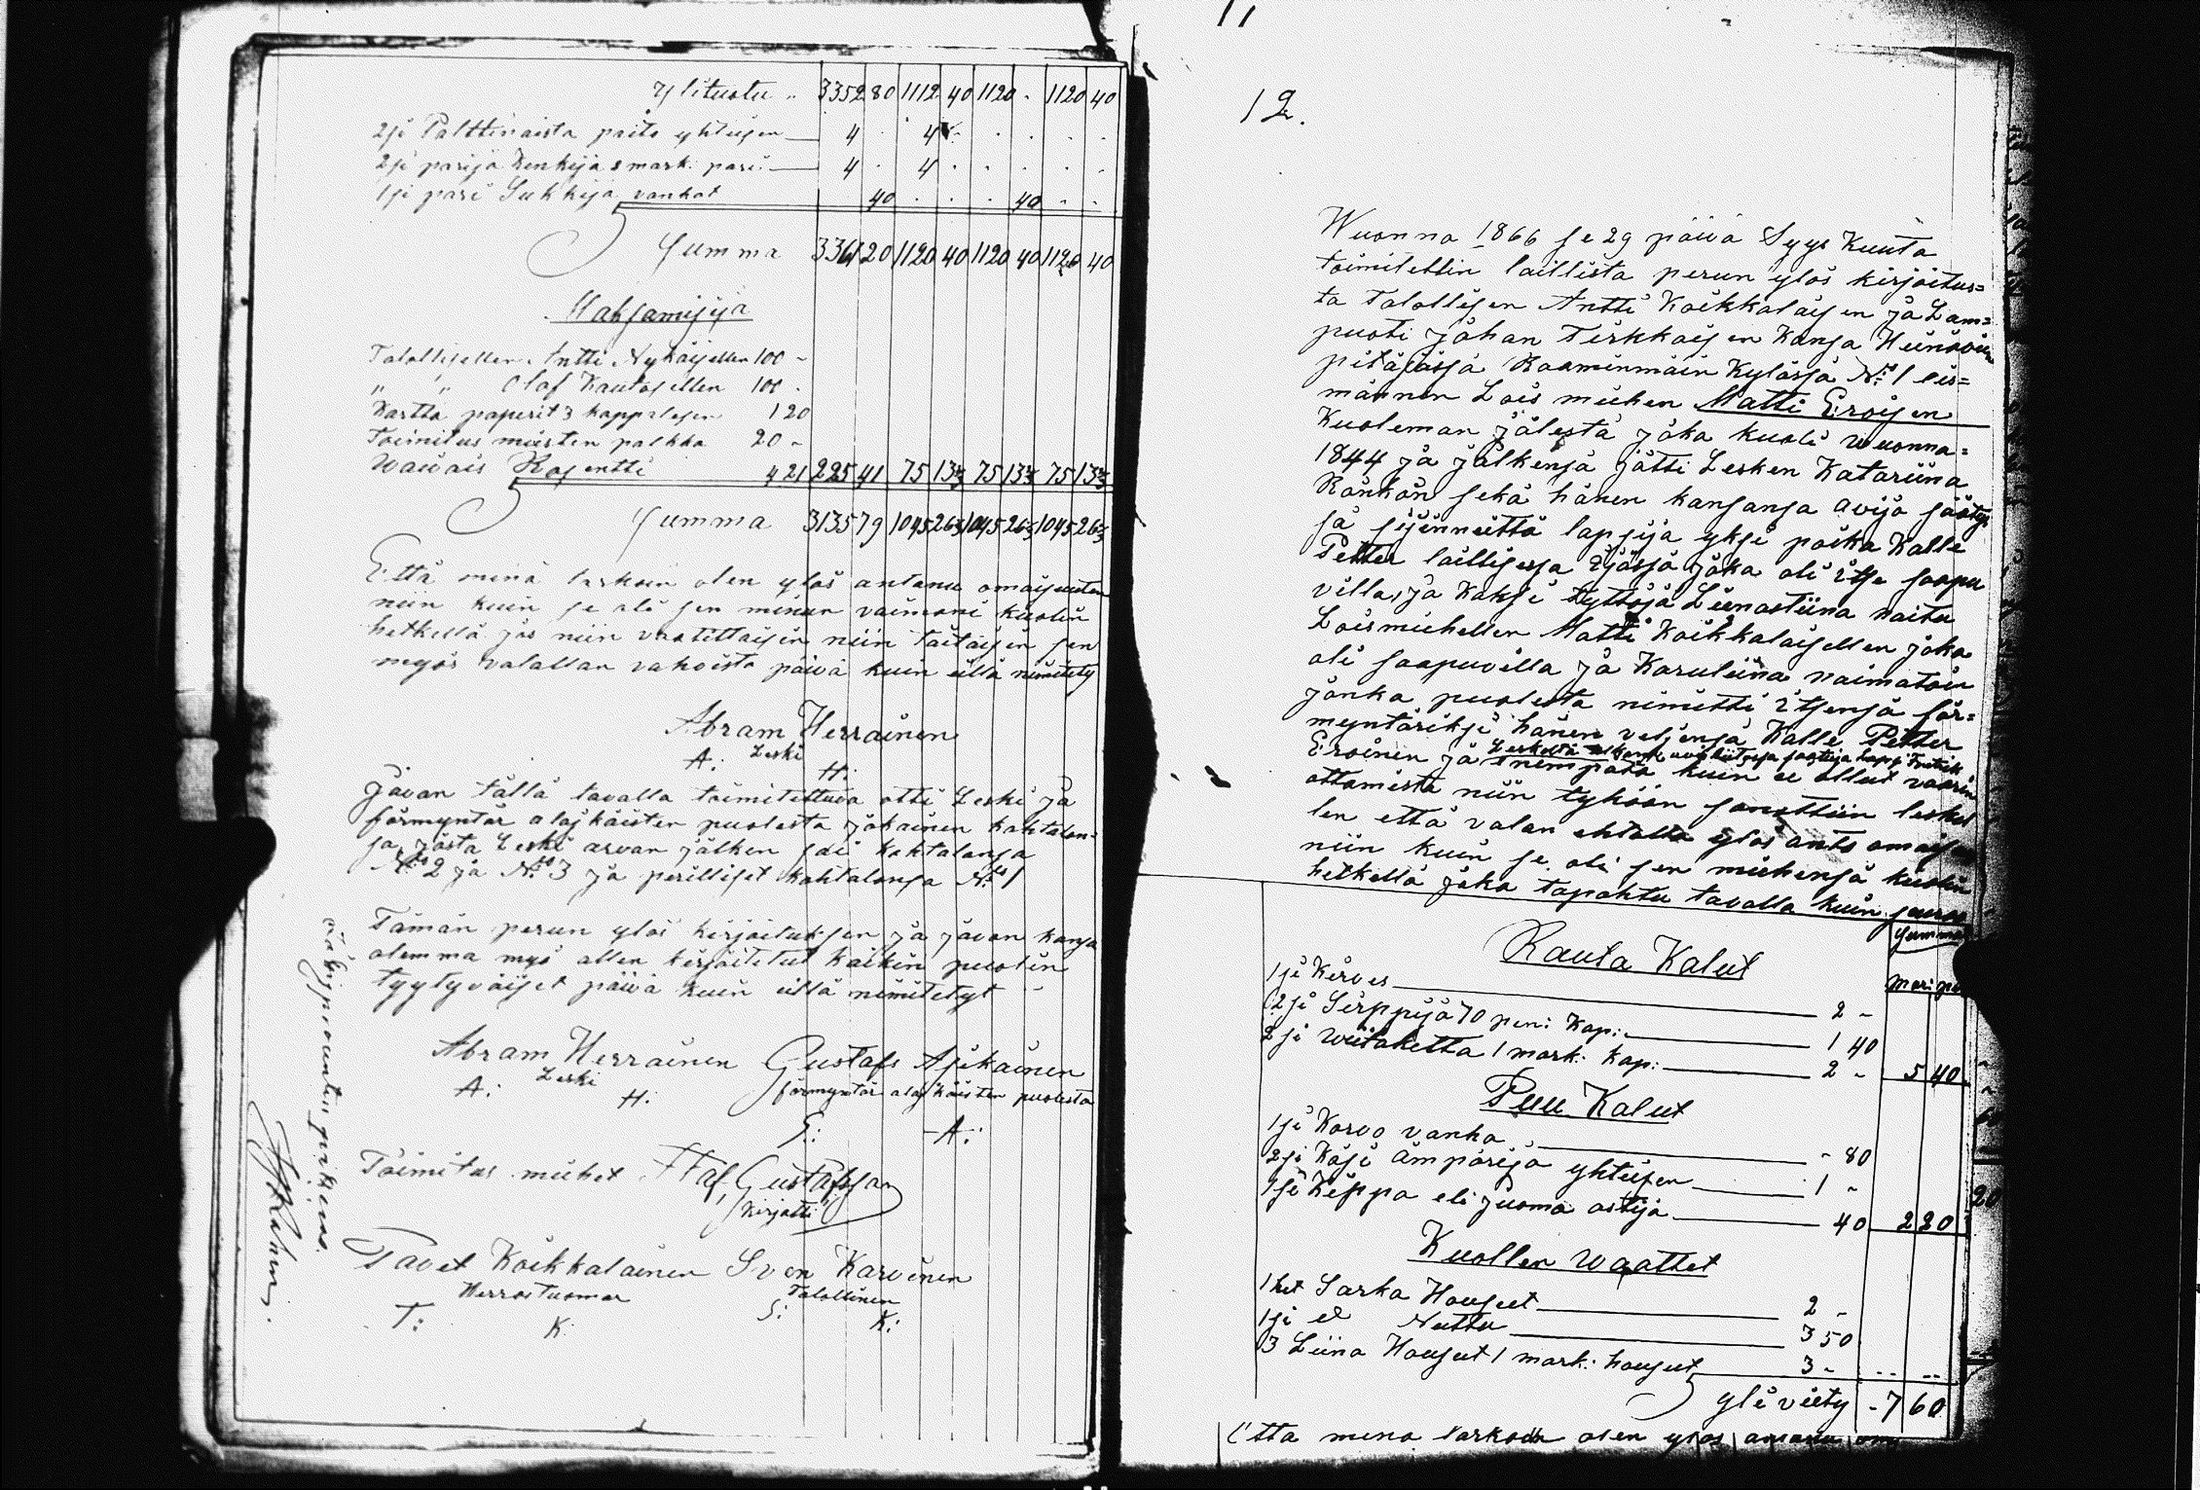 Ylituotu .. 3352 80 1112 40 1120 . 1120 40
2si Palttinaista paita yhteisen 4 . 4 . . . . .
2si parija Kenkijä 2 mark: pari: 4 . 4 . . . . .
1si pari Sukkija vanhat 40 . . . 40 . .
Summa 3361 20 1120 40 1120 40 1120 40
Maksamisija
Talollisellen Antti Nykäisellen 100 -
" " Olaf Kautosellen 100 -
Kartta paperit 3 kappalesen 1 20
Toimitus miesten palkka 20 -
Waivais Prosentti 4 21 225 41 75 13⅔ 75 13⅔ 75 13⅔
Summa 3135 79 1045 26⅔ 1045 26⅔ 1045 26⅔
Että minä tarkoin olen ylös antanu omaisuuten
niin kuin se oli sen minun vaimoni kuolin
hetkellä jos niin vaatittaisin niin täitäisin sen
myös valallan vahvista päivä kuin eillä nimitety
Abram Herrainen
Leski
A: H:
Jåvon tällä tavalla toimitettua otti Leski ja
förmyntär alaikäisten puolesta jokainen kohtalon=
sa, josta Leski arvan jälken sai kohtalonsa
No 2 ja No 3 ja perilliset kohtalonsa No 1
Tämän perun ylös kirjoituksen ja jävon kansa
olemma myö allen kirjoitetut kaikin puolin
tyytyväiset päivä kuin eillä nimitetyt
Abram Herrainen Gustafs Asikainen
Leski förmyntär alaikäisten puolesta
A: H: G: A:
Toimitus miehet Staf, Gustafsson
Kirjotti
Tavet Koikkalainen Sven Karvinen
Herrastuomar Talollinen
T: K: S: K:
11
12.
Wuonna 1866 se 29 päivä Syys Kuuta
toimitettin laillista perun ylös kirjoitus=
ta Talollisen Antti Koikkalaisen ja Lam=
puoti Johan Tirkkoisen Kansa Heinäven
pitäjässä Rasminmäin Kylässä No 1 eis=
männen Lois miehen Matti Eroisen
Kuoleman jälestä joka kuoli wuonna=
1844 ja jälkensä jätti Lesken Katariina
Rönkön sekä hänen kansansa avijo säätys
sä sijenneittä lapsija yksi poika Kalle
Petter laillisessa ijässä joka oli itse saapu
villa, ja kaksi tyttöjä Liinastiina naitu
Loismiehellen Matti Koikkalaisellen joka
oli saapuvilla ja Karuliina naimatoin
jonka puolesta nimitti itsensä för=
myntäriksi hänen veljensä Kalle Petter
Eroinen ja enempätä kuin ei ollut vaarin
ottamista niin tyköän sanottiin leskel
len että valan ehtolla ylös anto omaisu
niin kuin se oli sen miehensä kuolin
hetkellä joka tapahtu tavalla kuin seuraa
Summa
Rauta Kalut
Mar: pe
1si Kirves 2 -
2si Sirppijä 70 pen: Kap: 1 40
2si wiitaketta 1 mark: Kap: 2 - 5 40
Puu Kalut
1si Korvo vanha - 80
2si Käsi ämpärijä yhteisen 1 -
1si Kippa eli juoma astija 40 2 20
Kuollen Waattet
1het Sarka Housut 2 -
1si d Nuttu 3 50
3 Liina Housut 1 mark: housut 3 -
yli viety - 7 60
Että minä tarkoin olen ylös antanu